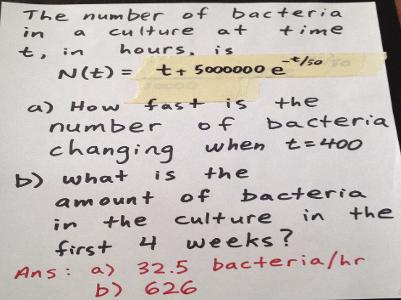 The number of bacteria
in a culture at time
t, in hours, is
N(t) = t + 5000000 e^-t/50
a) How fast is the
number of bacteria
changing when t=400
b) what is the
amount of bacteria
in the culture in the
first 4 weeks?
Ans: a) 32.5 bacteria/hr
b) 626